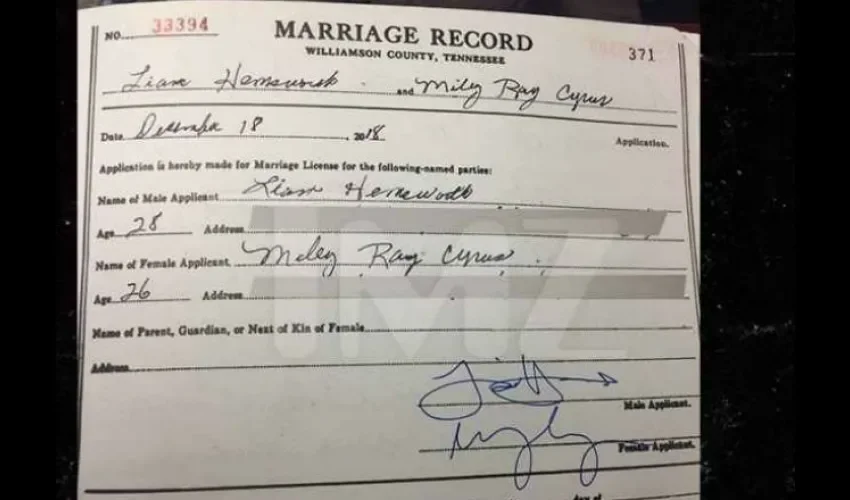 NO. 33394
MARRIAGE RECORD
371
WILLIAMSON COUNTY, TENNESSEE
Liam Hemsworth and Miley Ray Cyrus
Date December 18, 2018
Application.
Application is hereby made for Marriage License for the following-named parties:
Name of Male Applicant Liam Hemsworth
Age 28 Address
Name of Female Applicant Miley Ray Cyrus
Age 26 Address
Name of Parent, Guardian, or Next of Kin of Female
Address
Male Applicant.
Female Applicant.
day of
TMZ